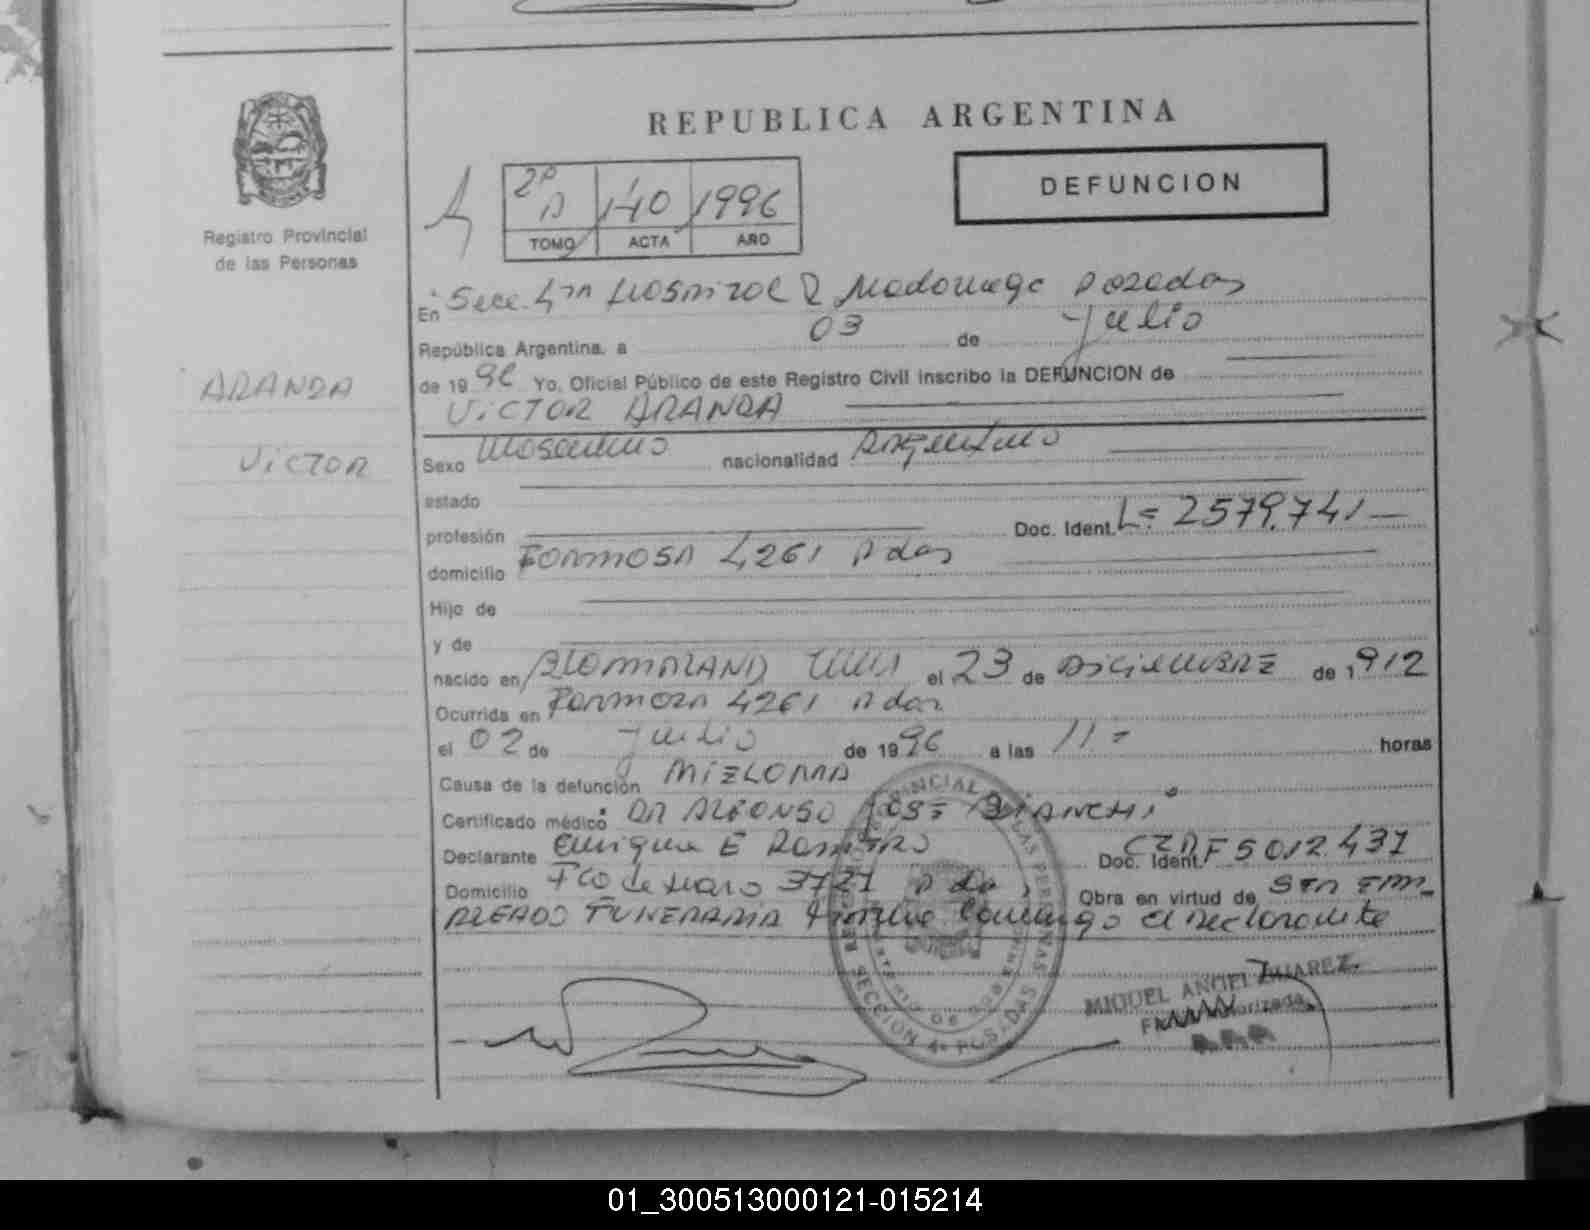 REPUBLICA ARGENTINA
DEFUNCION
2º A 140 1996
TOMO ACTA AÑO
Registro Provincial
de las Personas
En Secc. 4ta Hospital R Madariaga Posadas
República Argentina, a 03 de Julio
de 1996 Yo, Oficial Público de este Registro Civil inscribo la DEFUNCION de
VICTOR ARANDA
ARANDA
VICTOR
Sexo Masculino nacionalidad Argentino
estado
profesión Doc. Ident. L= 2579.741
domicilio FORMOSA 4261 Pdas
Hijo de
y de
nacido en el 23 de DICIEMBRE de 1912
Ocurrida en Formosa 4261 Pdas
el 02 de Julio de 1996 a las 11= horas
Causa de la defunción MIELOMA
Certificado médico DR ALFONSO JOSE BIANCHI
Declarante Enrique E RAMIRO Doc. Ident. F 5012.431
Domicilio Fco de Haro 3727 Pdas Obra en virtud de SER EM
PLEADO FUNERARIA el declarante
REGISTRO PROVINCIAL DE LAS PERSONAS
SECCION 4ª POSADAS
MINISTERIO DE GOBIERNO
MIGUEL ANGEL JUAREZ
01_300513000121-015214